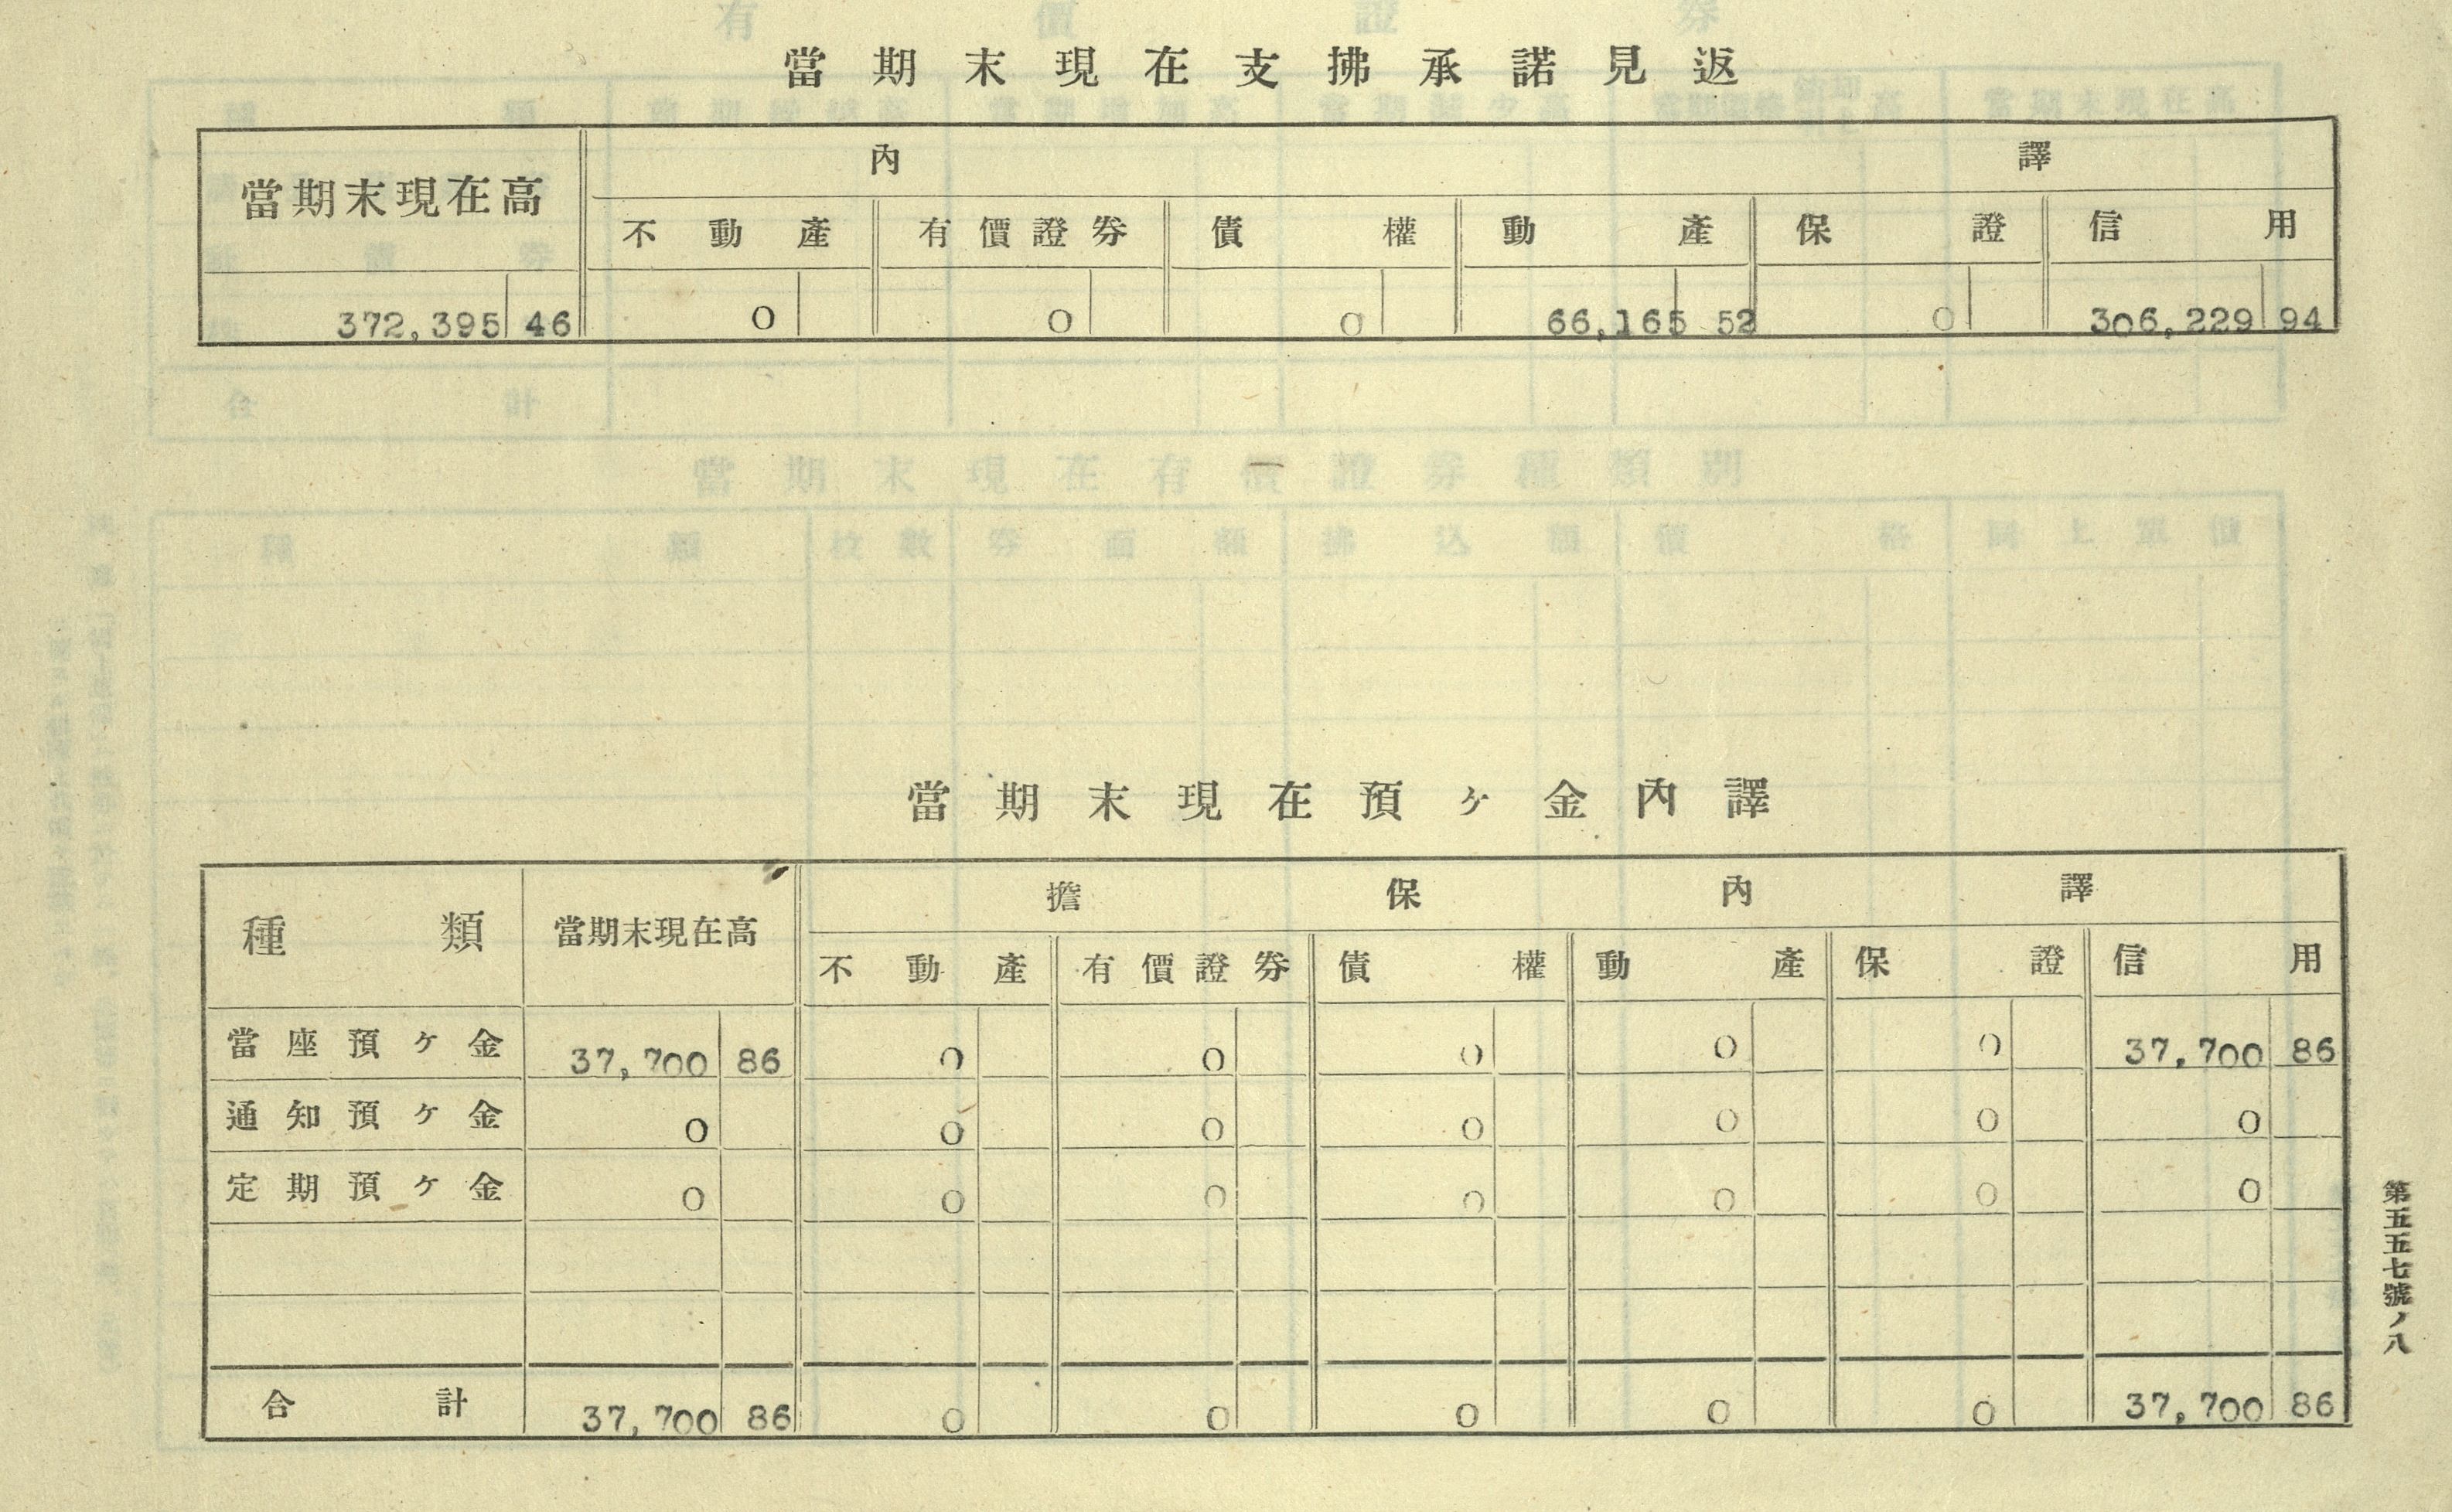 當期末現在支拂承諾見返
當期末現在高 內譯
不動產 有價證券 債權 動產 保證 信用
372,395 46 0 0 0 66,165 52 0 306,229 94
當期末現在預ヶ金內譯
種類 當期末現在高 擔保內譯
不動產 有價證券 債權 動產 保證 信用
當座預ヶ金 37,700 86 0 0 0 0 0 37,700 86
通知預ヶ金 0 0 0 0 0 0 0
定期預ヶ金 0 0 0 0 0 0 0
合計 37,700 86 0 0 0 0 0 37,700 86
第五五七號ノ八